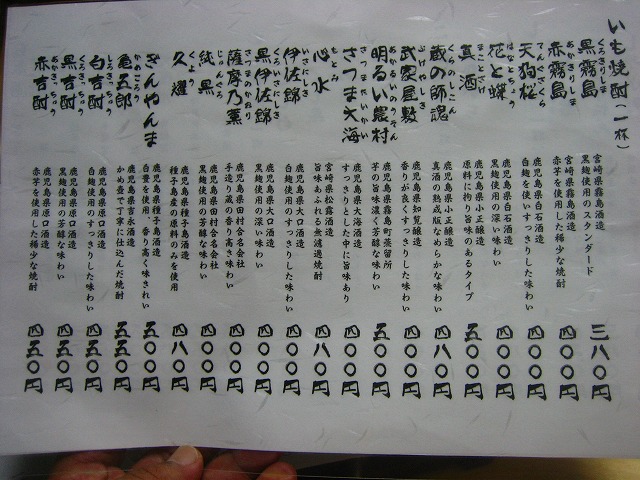 いも焼酎(一杯)
くろきりしま
黒霧島
宮崎県霧島酒造
黒麹使用のスタンダード
三八〇円
あかきりしま
赤霧島
宮崎県霧島酒造
赤芋を使用した稀少な焼酎
四〇〇円
てんぐざくら
天狗桜
鹿児島県白石酒造
白麹を使いすっきりした味わい
四〇〇円
はなとちょう
花と蝶
鹿児島県白石酒造
黒麹使用の深い味わい
四〇〇円
まことさけ
真酒
鹿児島県小正醸造
原料に拘り旨味のあるタイプ
五〇〇円
くらのしこん
蔵の師魂
鹿児島県小正醸造
真酒の熟成版なめらかな味わい
四八〇円
ぶけやしき
武家屋敷
鹿児島県知覧醸造
香りが良くすっきりした味わい
四〇〇円
あかるいのうそん
明るい農村
鹿児島県霧島町蒸留所
芋の旨味濃く芳醇な味わい
五〇〇円
さつまたいかい
さつま大海
鹿児島県大海酒造
すっきりとした中に旨味あり
四〇〇円
もとみ
心水
宮崎県松露酒造
旨味あふれる無濾過焼酎
四八〇円
いさにしき
伊佐錦
鹿児島県大口酒造
白麹使用のすっきりした味わい
四〇〇円
くろいさにしき
黒伊佐錦
鹿児島県大口酒造
黒麹使用の深い味わい
四〇〇円
さつまのかおり
薩摩乃薫
鹿児島県田村合名会社
手造り蔵の香り高き味わい
四〇〇円
じゅんくろ
純黒
鹿児島県田村合名会社
黒麹使用の芳醇な味わい
四〇〇円
くよう
久耀
鹿児島県種子島酒造
種子島産の原料のみを使用
四八〇円
ぎんやんま
鹿児島県種子島酒造
白豊を使用、香り高く味きれい
五〇〇円
かめごろう
亀五郎
鹿児島県吉永酒造
かめ壺で丁寧に仕込んだ焼酎
五五〇円
しろきっちゅう
白吉酎
鹿児島県原口酒造
白麹使用のすっきりした味わい
四五〇円
くろきっちゅう
黒吉酎
鹿児島県原口酒造
黒麹使用の芳醇な味わい
四五〇円
あかきっちゅう
赤吉酎
鹿児島県原口酒造
赤芋を使用した稀少な焼酎
四五〇円